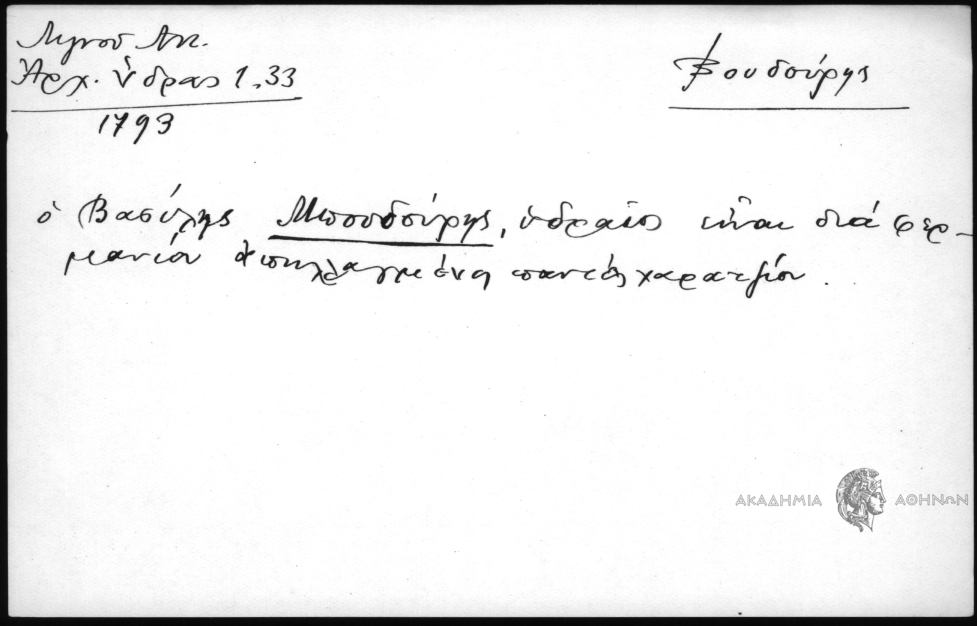 Λιγνού Αντ.
Ἀρχ. Ὕδρας 1.33
1793
Βουδούρης
ὁ Βασίλης Μπουδούρης, ὑδραῖος εἶναι διά φερ-
μανίου ἀπηλλαγμένος παντός χαρατζίου.
ΑΚΑΔΗΜΙΑ ΑΘΗΝΩΝ